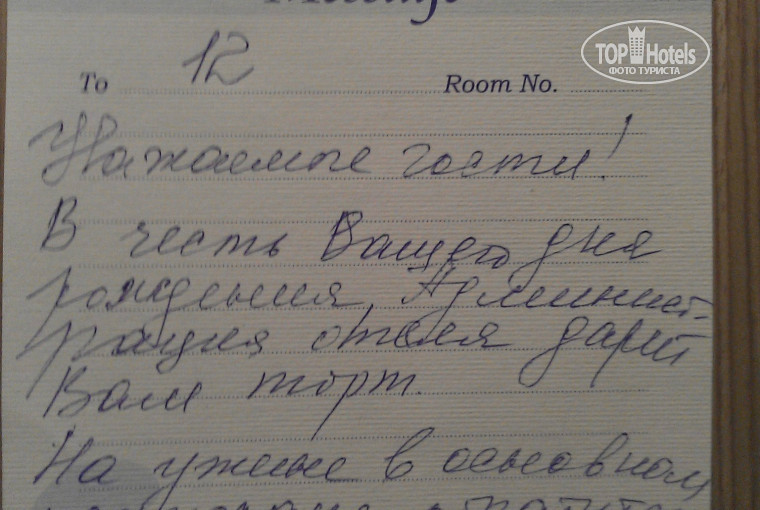 Message
To 12 Room No.
TOP Hotels
ФОТО ТУРИСТА
Уважаемые гости!
В честь Вашего дня
рождения, Админист-
рация отеля дарит
Вам торт.
На ужине в основном